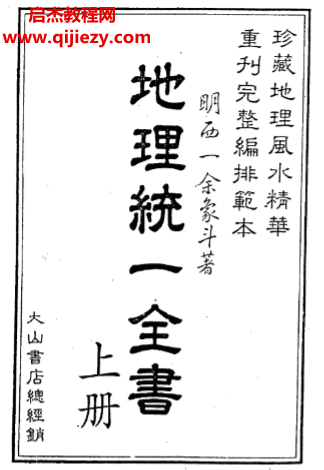 启杰教程网
www.qijiezy.com
珍藏地理風水精華
重刊完整編排範本
明西一余象斗著
地理統一全書
上册
大山書店總經銷